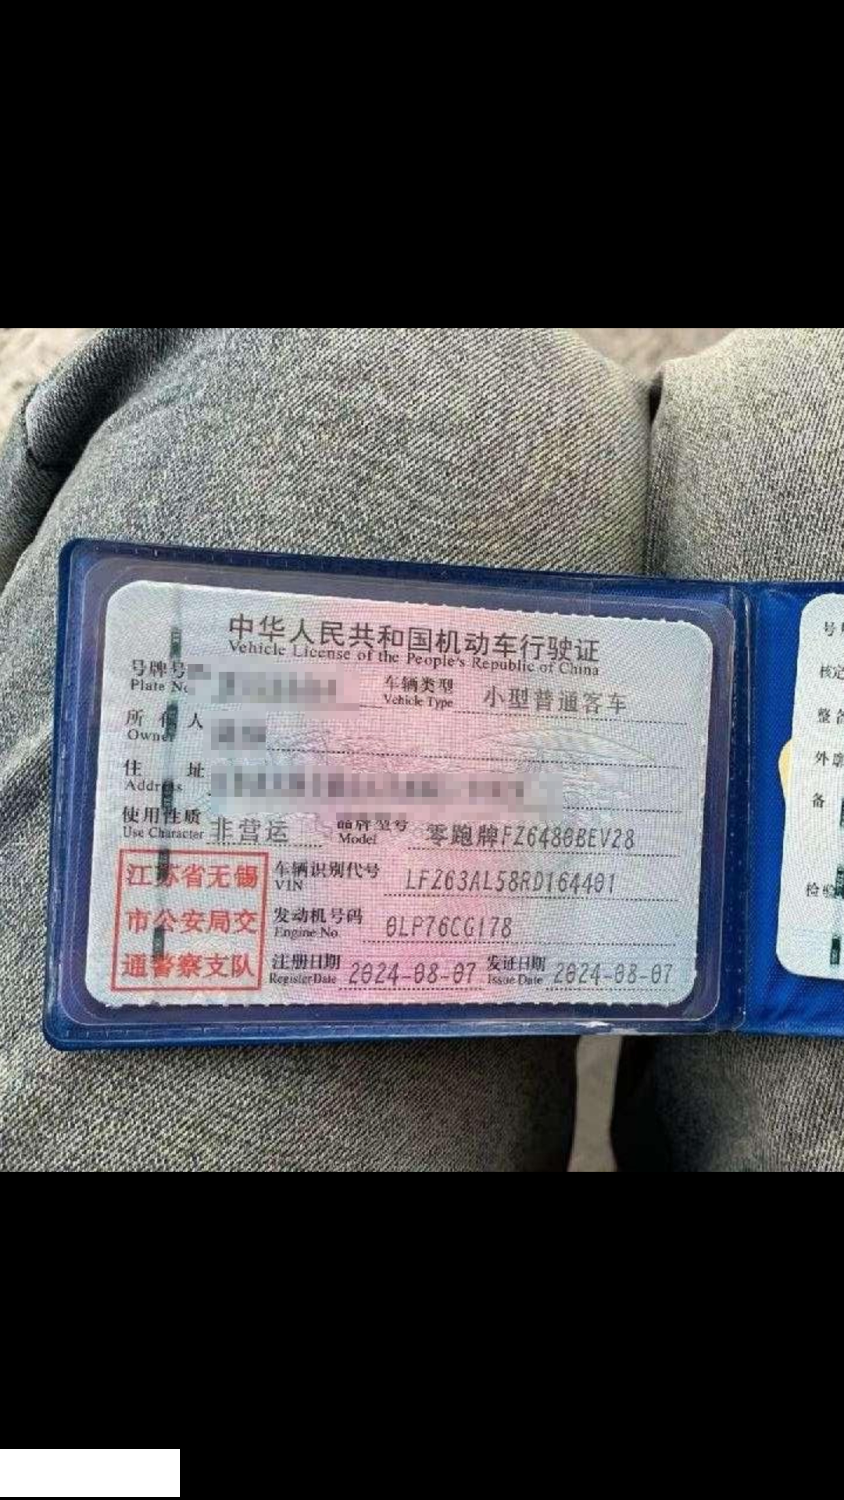 中华人民共和国机动车行驶证
Vehicle License of the People's Republic of China
号牌号
Plate No
车辆类型
Vehicle Type
小型普通客车
所 有 人
Owner
住 址
Address
使用性质
Use Character
非营运
品牌型号
Model
零跑牌FZ6480BEV28
江苏省无锡
市公安局交
通警察支队
车辆识别代号
VIN
LFZ63AL58RD164401
发动机号码
Engine No.
0LP76CG178
注册日期
Register Date
2024-08-07
发证日期
Issue Date
2024-08-07
号
核定
整备
外廓
备
检验